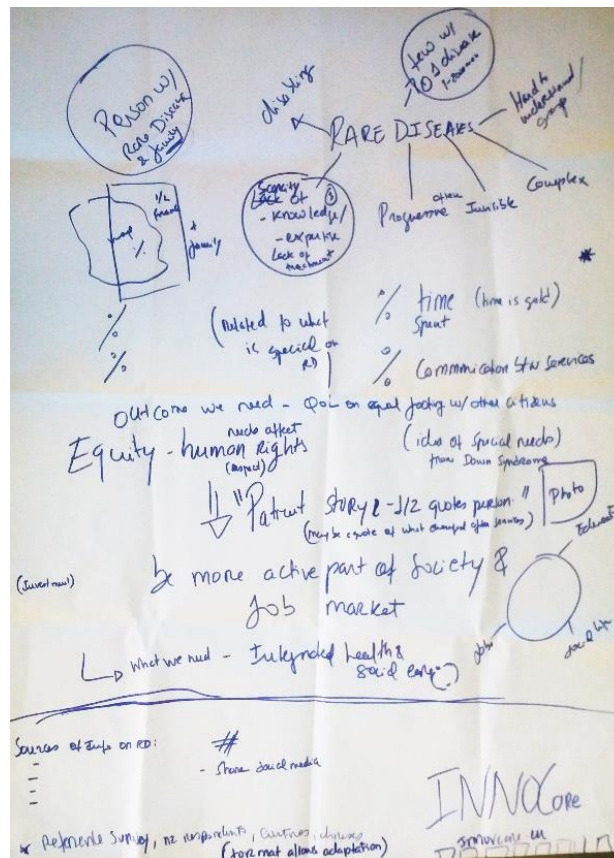 Person w/
Rare Disease
& family
few w/
① 1 disease
disabling
RARE DISEASES
Hard to
understand/
Complex
Progressive
often
Invisible
Scarcity
Lack of
- knowledge/
- expertise
Lack of
treatment
1/2
+
family
map
%
*
%
%
(Related to what
is special on
RD)
% time (time is gold)
spent
% Communication btw services
OUTCOME we need - QoL on equal footing w/ other citizens
needs affect
Equity - human Rights
(aspect)
(idea of special needs)
from Down Syndrome
"Patient story & -1/2 quotes person."
(maybe quote of what changed after services)
Photo
(Investment)
be more active part of society &
Job market
Educat
jobs
social life
What we need - Integrated health &
social care
Sources of Info on RD:
-
-
-
-
#
- Share social media
INNOVCare
innovcare.eu
* Reference survey, nr respondents, countries, diseases
(format allows adaptation)